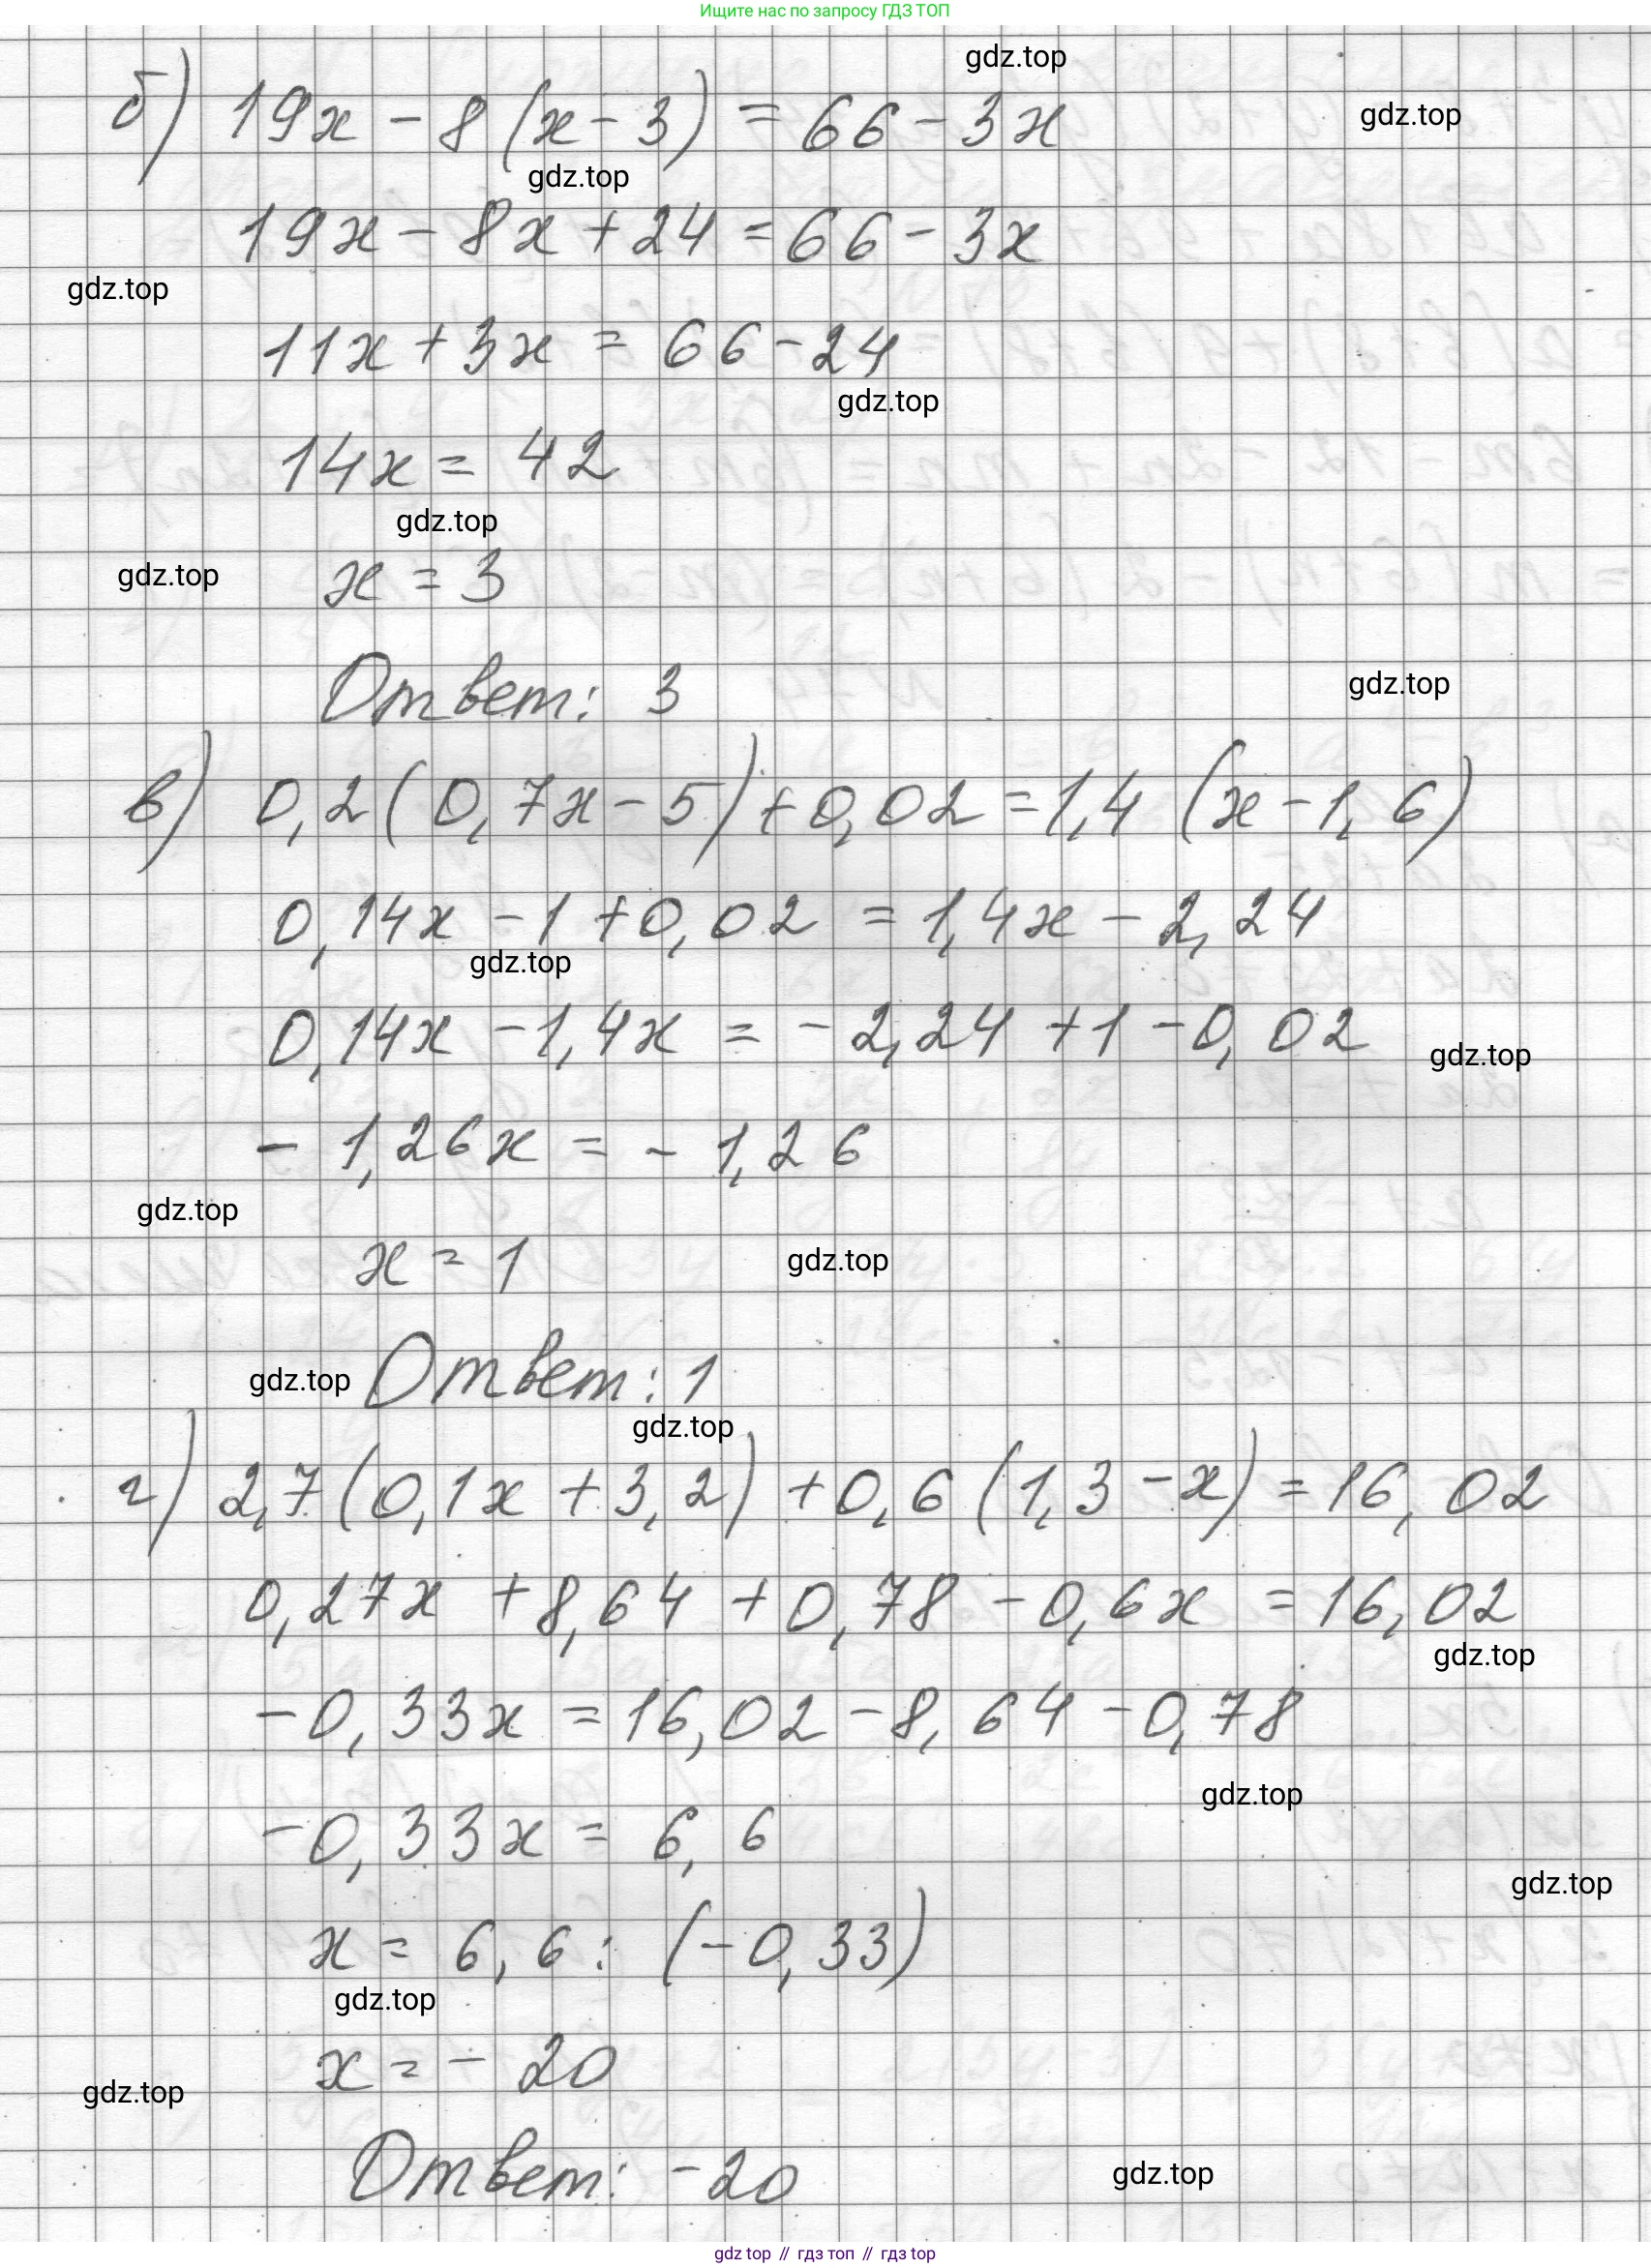 Ищите нас по запросу ГДЗ ТОП
gdz.top
б) 19x - 8(x - 3) = 66 - 3x
gdz.top
gdz.top
19x - 8x + 24 = 66 - 3x
gdz.top
11x + 3x = 66 - 24
gdz.top
14x = 42
gdz.top
gdz.top
x = 3
gdz.top
Ответ: 3
в) 0,2(0,7x - 5) + 0,02 = 1,4 (x - 1,6)
0,14x - 1 + 0,02 = 1,4x - 2,24
gdz.top
0,14x - 1,4x = - 2,24 + 1 - 0,02
gdz.top
- 1,26x = - 1,26
gdz.top
x = 1
gdz.top
gdz.top
Ответ: 1
gdz.top
г) 2,7(0,1x + 3,2) + 0,6 (1,3 - x) = 16,02
0,27x + 8,64 + 0,78 - 0,6x = 16,02
gdz.top
-0,33x = 16,02 - 8,64 - 0,78
gdz.top
-0,33x = 6,6
gdz.top
x = 6,6 : (-0,33)
gdz.top
x = - 20
gdz.top
Ответ: -20
gdz.top
gdz top // гдз топ // гдз top